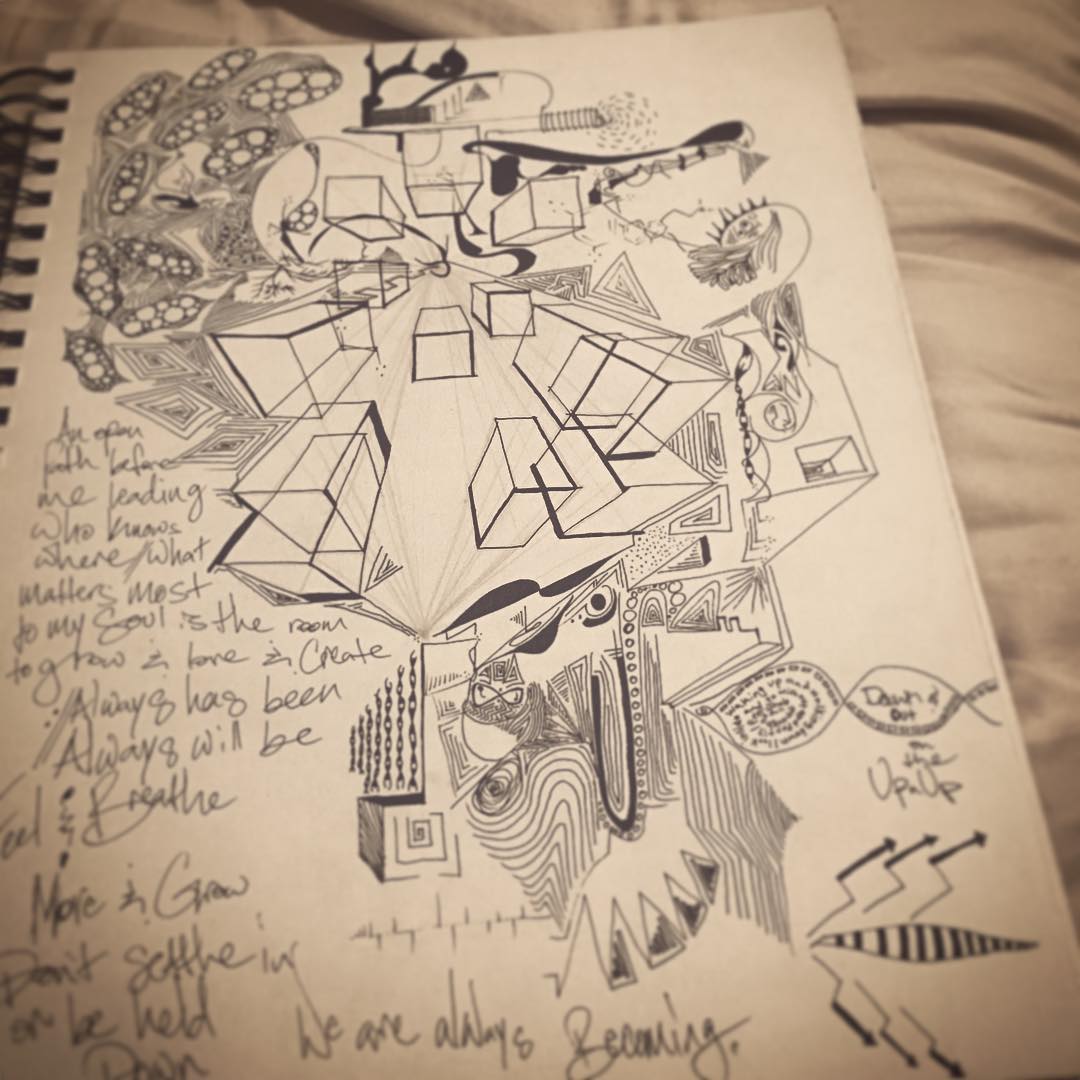 An open
path before
me leading
who knows
where/what
matters most
to my Soul is the room
to grow & love & Create
Always has been
Always will be
Feel & Breathe
Move & Grow
Don't settle in
or be held
Down
We are always Becoming.
Down &
Out
on
the
Up n Up